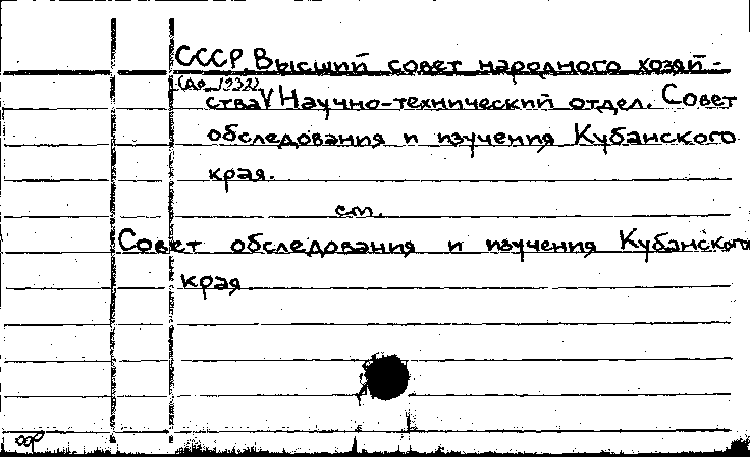 СССР. Высший совет народного хозяй-
(до 1932)
ства. Научно-технический отдел. Совет
обследования и изучения Кубанского
края.
см.
Совет обследования и изучения Кубанского
край